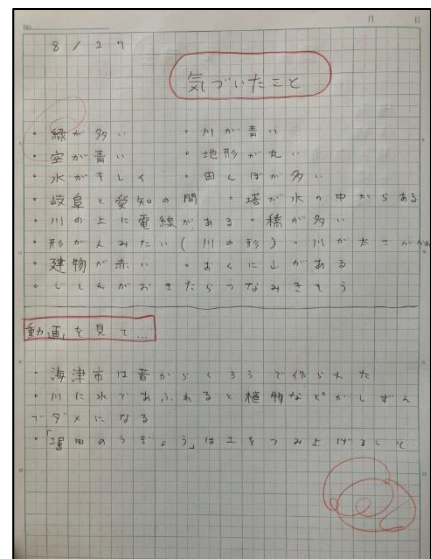 月 日
8/27
気づいたこと
・緑が多い ・川が青い
・空が青い ・地形が丸い
・水がすしく ・田んぼが多い
・岐阜と愛知の間 ・塔が水の中からある
・川の上に電線がある ・橋が多い
・形が人みたい(川の形) ・川が大き
・建物が赤い ・おくに山がある
・じしんがおきたらつなみきそう
動画を見て…
・海津市は昔からくろうで作られた
・川に水であふれると植物などがしずん
でダメになる
・「堀田のうぎょう」は土をつみ上げること